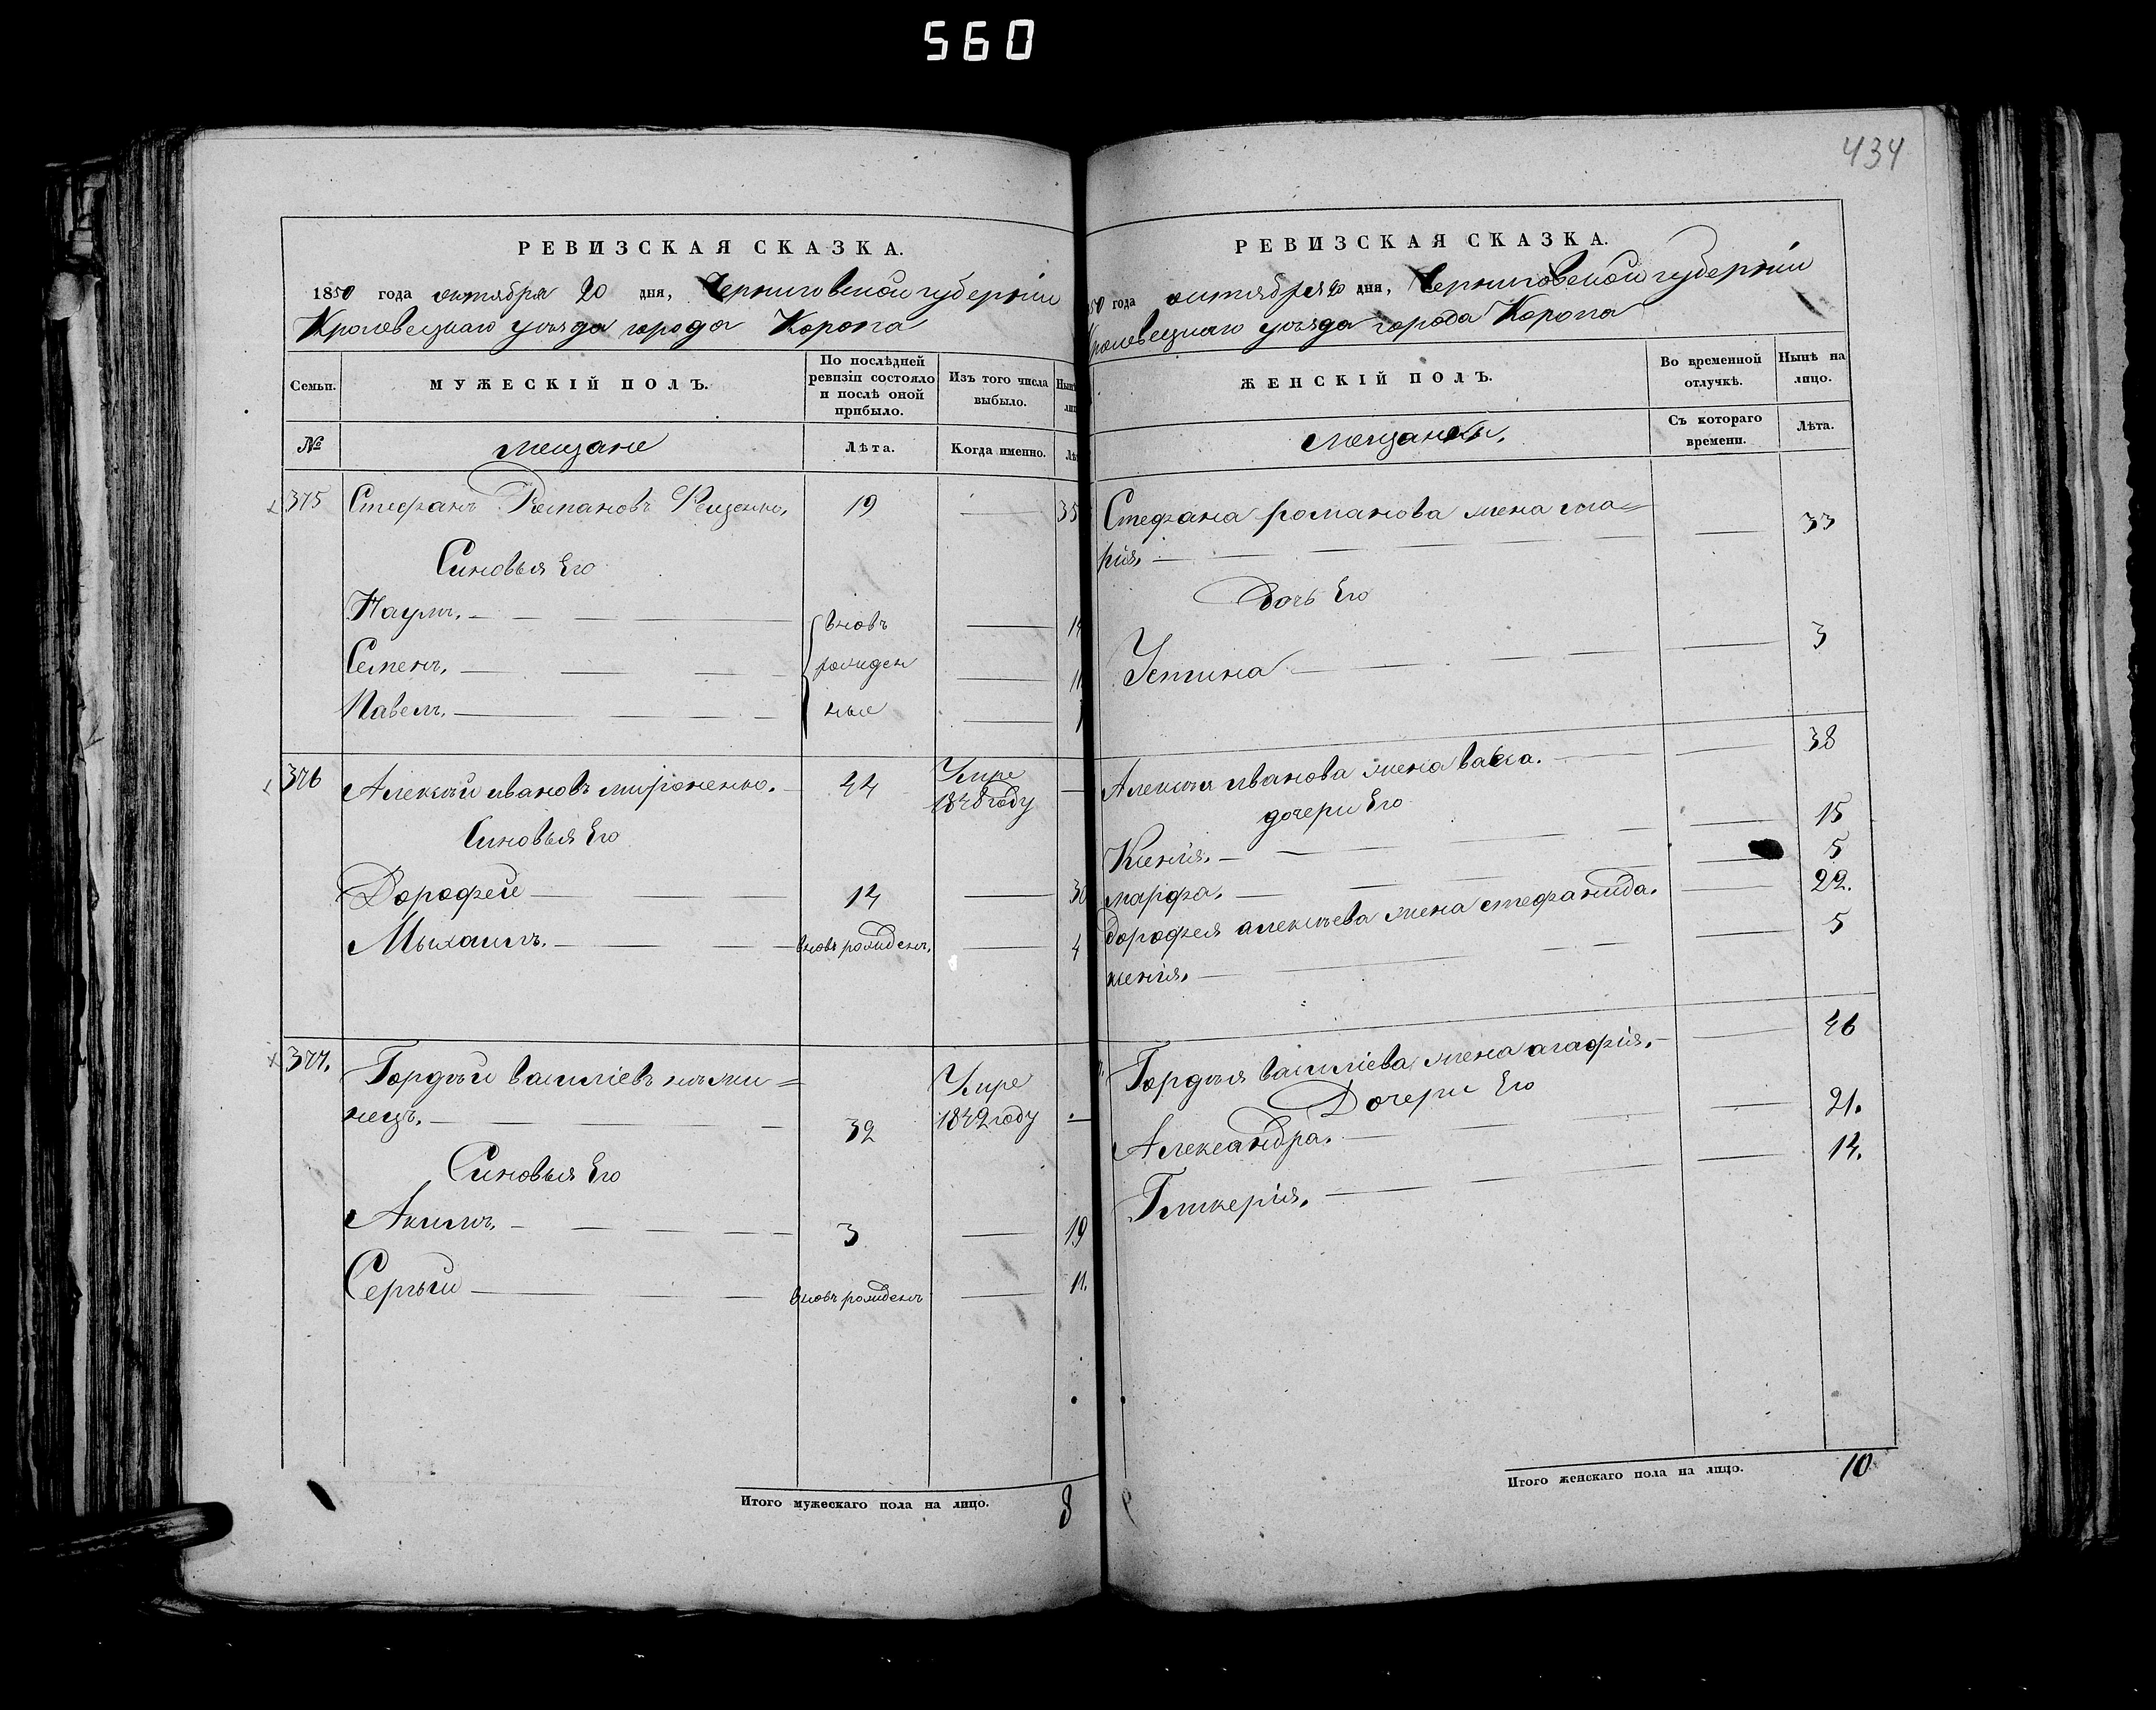 560
434
РЕВИЗСКАЯ СКАЗКА.
1850 года октября 20 дня, Черниговской губерніи
Кролевецкаго уѣзда города Коропа
Семьи. МУЖЕСКІЙ ПОЛЪ. По послѣдней ревизіи состояло и послѣ оной прибыло. Изъ того числа выбыло. Нынѣ
№ мещане Лѣта. Когда именно.
375 Стефанъ Романовъ 19 — 35
Синовья Его
Наумъ. — вновь —
Семенъ. — рожден —
Павелъ. — ные —
376 Алексѣй ивановъ мироненко. 44 Умре 1848 году —
Синовья Его
Дорофей — 14 — 30
Мыхаилъ. — вновь рожденъ. — 4
377. Гордѣй василіевъ нѣжи=
нецъ. — 32 Умре 1842 году —
Синовья Его
Акимъ. — 3 — 19
Сергѣй — вновь рожденъ — 11.
Итого мужескаго пола на лицо. 8
РЕВИЗСКАЯ СКАЗКА.
50 года октября 20 дня, Черниговской губерніи
Кролевецкаго уѣзда города Коропа
ЖЕНСКІЙ ПОЛЪ. Во временной отлучкѣ. Нынѣ на лицо.
мещанки. Съ котораго времени. Лѣта.
Стефана романова жена ма=
рія. — 33
Дочь Его
Устина — 3
Алексѣя иванова жена васса. — 38
дочери Его
Ксенія. — 15
марфа. — 5
дорофея алексѣева жена стефанида. — 22.
ксенія. — 5
Гордѣя василіева жена агафія. — 46
Дочери Его
Александра. — 21.
Гликерія. — 14.
Итого женскаго пола на лицо. 10